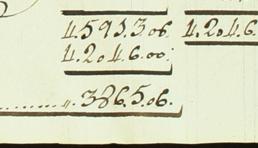 4.591.3.06 4.204.6.
4.204.6.00;
386.5.06.